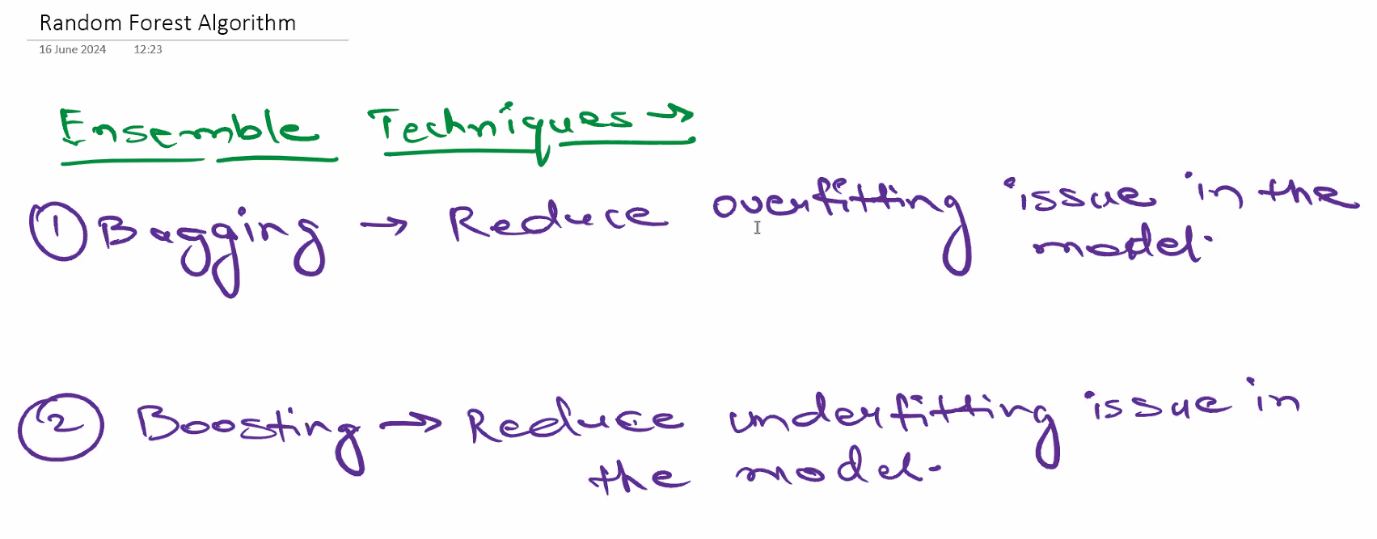 Random Forest Algorithm
16 June 2024 12:23
Ensemble Techniques →
① Bagging → Reduce overfitting issue in the
model.
② Boosting → Reduce underfitting issue in
the model.